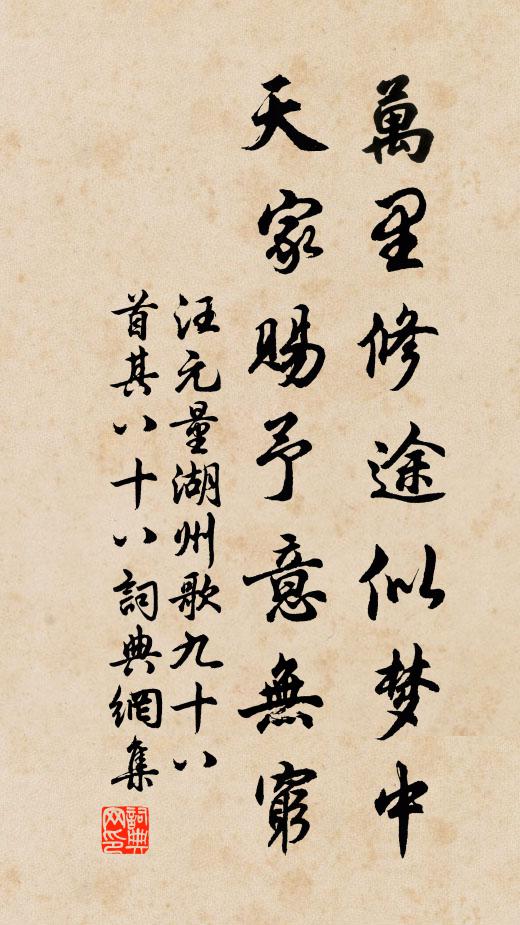 萬里修途似梦中
天家賜予意無窮
汪元量湖州歌九十八
首其八十八詞典網集
詞典网印